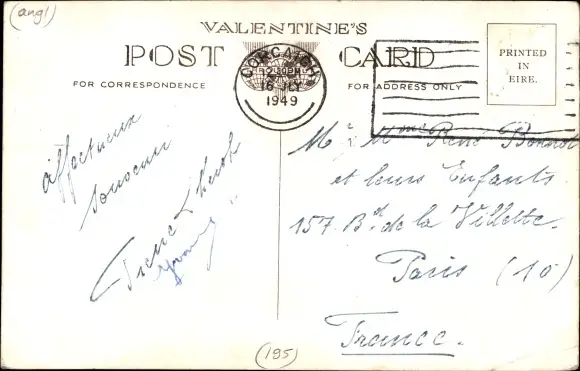 (angl)
VALENTINE'S
POST CARD
FOR CORRESPONDENCE
FOR ADDRESS ONLY
PRINTED
IN
EIRE.
CORCAIGH
16 JLY
1949
Affectueux
souvenir
Irene &
Mr & Mme René Bonnot
et leurs Enfants.
157. Bd. de la Villette.
Paris (10)
France.
(195)